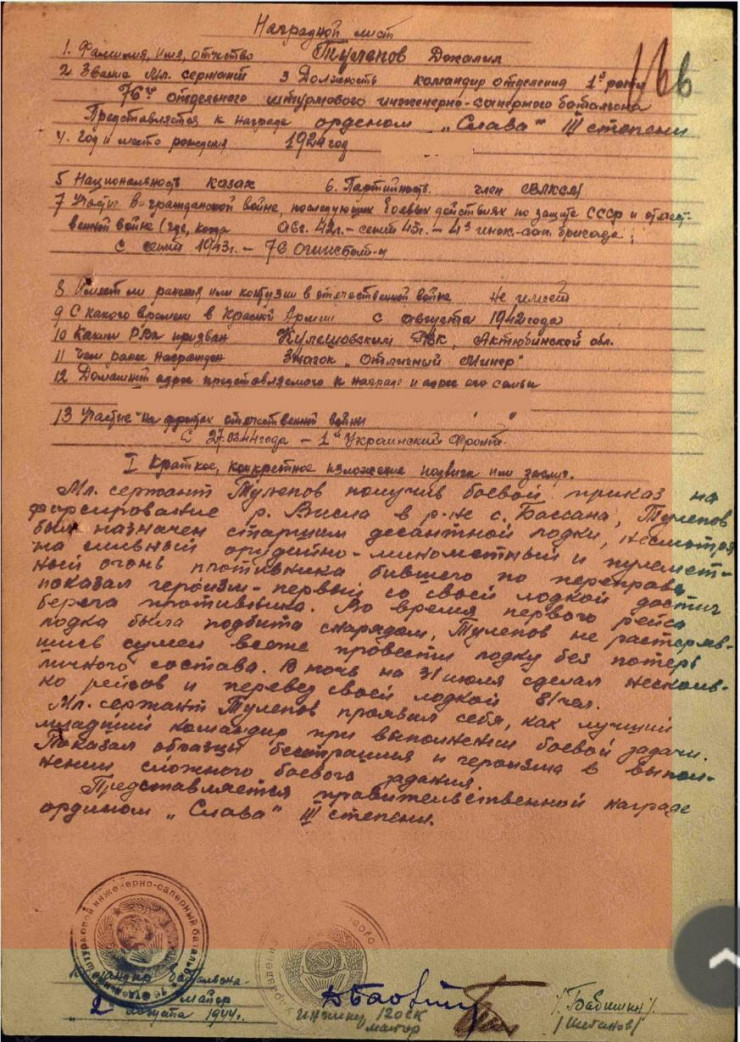 Наградной лист
1. Фамилия, имя, отчество Тулепов Джалил
2 Звание мл. сержант 3 Должность командир отделения 1й роты
76го отдельного штурмового инженерно-саперного батальона
Представляется к награде орденом „Слава" III степени
4. Год и место рождения 1924 год
5 Национальность казак 6. Партийность член ВЛКСМ
7 Участие в гражданской войне, последующих боевых действиях по защите СССР и отечест-
венной войне (где, когда авг. 42г. - сент 43г. - 43 инж.-сап. бригада;
с сент 1943г. - 76 ошисбат-н
8 Имеет ли ранения или контузии в отечественной войне Не имеет
9 С какого времени в Красной Армии с августа 1942 года
10 Каким РВК призван РВК, Актюбинской обл.
11 Чем ранее награжден Значок „Отличный Минер"
12 Домашний адрес представляемого к награде и адрес его семьи
13 Участие на фронтах отечественной войны
С года - 1й Украинский Фронт.
I Краткое, конкретное изложение подвига или заслуг.
Мл. сержант Тулепов получив боевой приказ на
форсирование р. Висла в р-не с. Бассана, Тулепов
был назначен старшим десантной лодки, несмотря
на сильный орудийно-минометный и пулемет-
ный огонь противника бившего по переправе
показал героизм - первый со своей лодкой достиг
берега противника. Во время первого рейса
лодка была подбита снарядом, Тулепов не растеряв-
шись сумел все же провести лодку без потерь
личного состава. В ночь на 31 июля сделал несколь-
ко рейсов и перевез своей лодкой 81 чел.
Мл. сержант Тулепов проявил себя, как лучший
младший командир при выполнении боевой задачи.
Показал образцы бесстрашия и героизма в выпол-
нении сложного боевого задания.
Представляется правительственной награде
орденом „Слава" III степени.
Командир батальона
майор /Бабишин/
2 августа 1944г.
майор